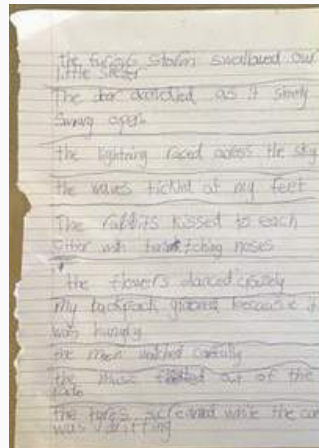 the furious storm swallowed our
little
The door as it slowly
swung open
the lightning raced across the sky
the waves tickled at my feet
The rabbits kissed to each
other with noses
the flowers danced
My backpack because it
was hungry
the moon watched carefully
the music out of the
the tyres screamed while the car
was drifting